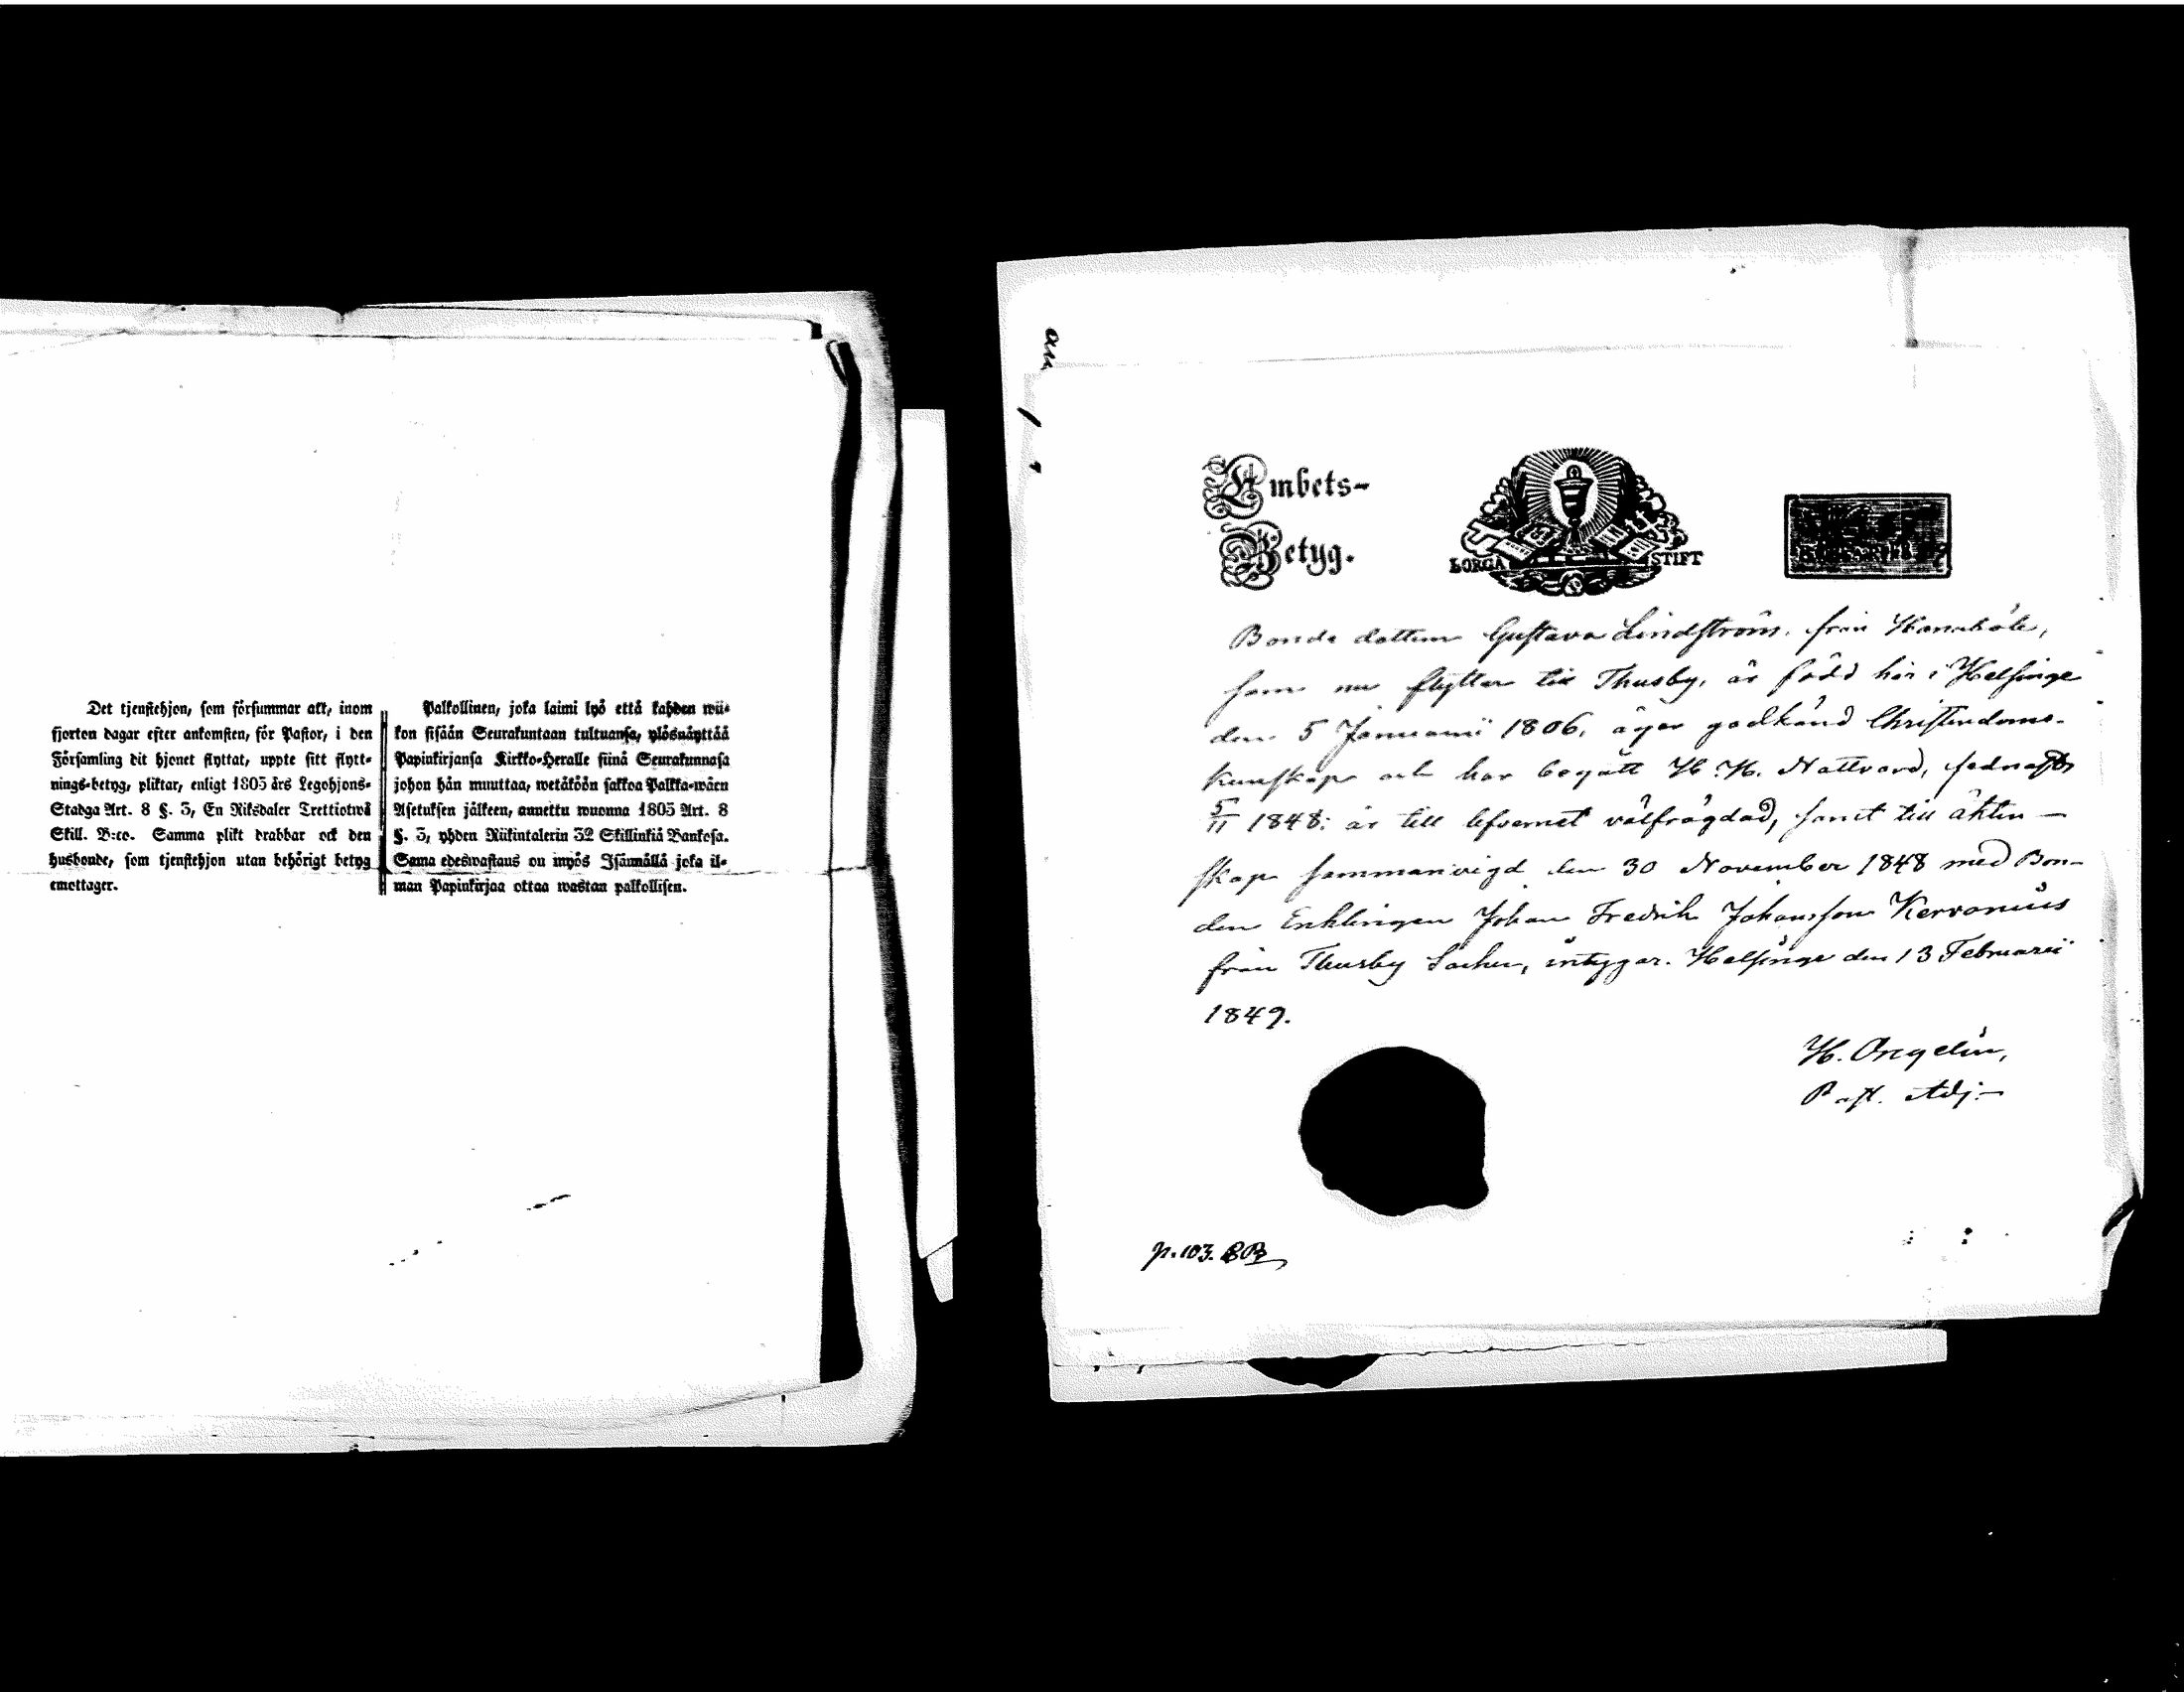 Det tjenstehjon, som försummar att, inom
fjorton dagar efter ankomsten, för Pastor, i den
Församling dit hjonet flyttat, uppte sitt flytt-
nings-betyg, pliktar, enligt 1805 års Legohjons-
Stadga Art. 8 §. 3, En Riksdaler Trettiotwå
Skill. B:co. Samma plikt drabbar ock den
husbonde, som tjenstehjon utan behörigt betyg
emottager.
Palkollinen, joka laimi lyö että kahden wii-
kon sisään Seurakuntaan tultuansa, ylösnäyttää
Papinkirjansa Kirkko-Heralle siinä Seurakunnasa
johon hän muuttaa, wetäköön sakkoa Palkka-wäen
Asetuksen jälkeen, annettu wuonna 1805 Art. 8
§. 3, yhden Riikintalerin 32 Skillinkiä Bankosa.
Sama edeswastaus on myös Isännällä joka il-
man Papinkirjaa ottaa wastan palkollisen.
Embets-
Betyg.
BORGA STIFT
Bonde dottern Gustava Lindström, från
som nu flyttar till Thusby, är född här i Helsinge
den 5 Januarii 1806, äger godkänd Christendoms-
kunskap och har begått H. H. Nattvard, sednast
5/11 1848; är till lefvernet välfrägdad, samt till äkten-
skap sammanvigd den 30 November 1848 med Bon-
den Enklingen Johan Fredrik Johansson Kervonius
från Thusby Socken, intygar. Helsinge den 13 Februarii
1849.
H.
Past. Adj:
p. 103.